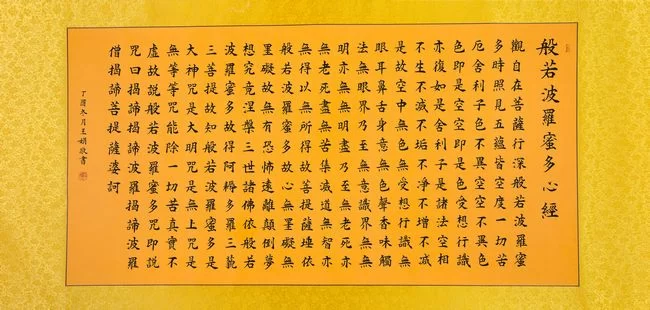 般若波羅蜜多心經
觀自在菩薩行深般若波羅蜜
多時照見五蘊皆空度一切苦
厄舍利子色不異空空不異色
色即是空空即是色受想行識
亦復如是舍利子是諸法空相
不生不滅不垢不淨不增不減
是故空中無色無受想行識無
眼耳鼻舌身意無色聲香味觸
法無眼界乃至無意識界無無
明亦無無明盡乃至無老死亦
無老死盡無苦集滅道無智亦
無得以無所得故菩提薩埵依
般若波羅蜜多故心無罣礙無
罣礙故無有恐怖遠離顛倒夢
想究竟涅槃三世諸佛依般若
波羅蜜多故得阿耨多羅三藐
三菩提故知般若波羅蜜多是
大神咒是大明咒是無上咒是
無等等咒能除一切苦真實不
虛故說般若波羅蜜多咒即說
咒曰揭諦揭諦波羅揭諦波羅
僧揭諦菩提薩婆訶
丁酉冬月王娟敬書